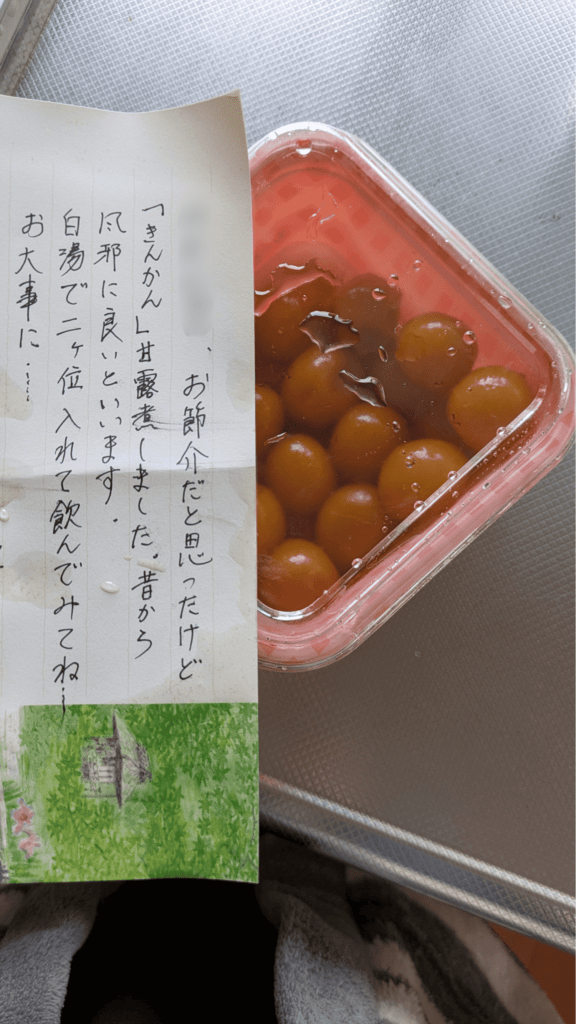 、お節介だと思ったけど
「きんかん」甘露煮しました。昔から
風邪に良いといいます.
白湯で二ヶ位入れて飲んでみてね…
お大事に……